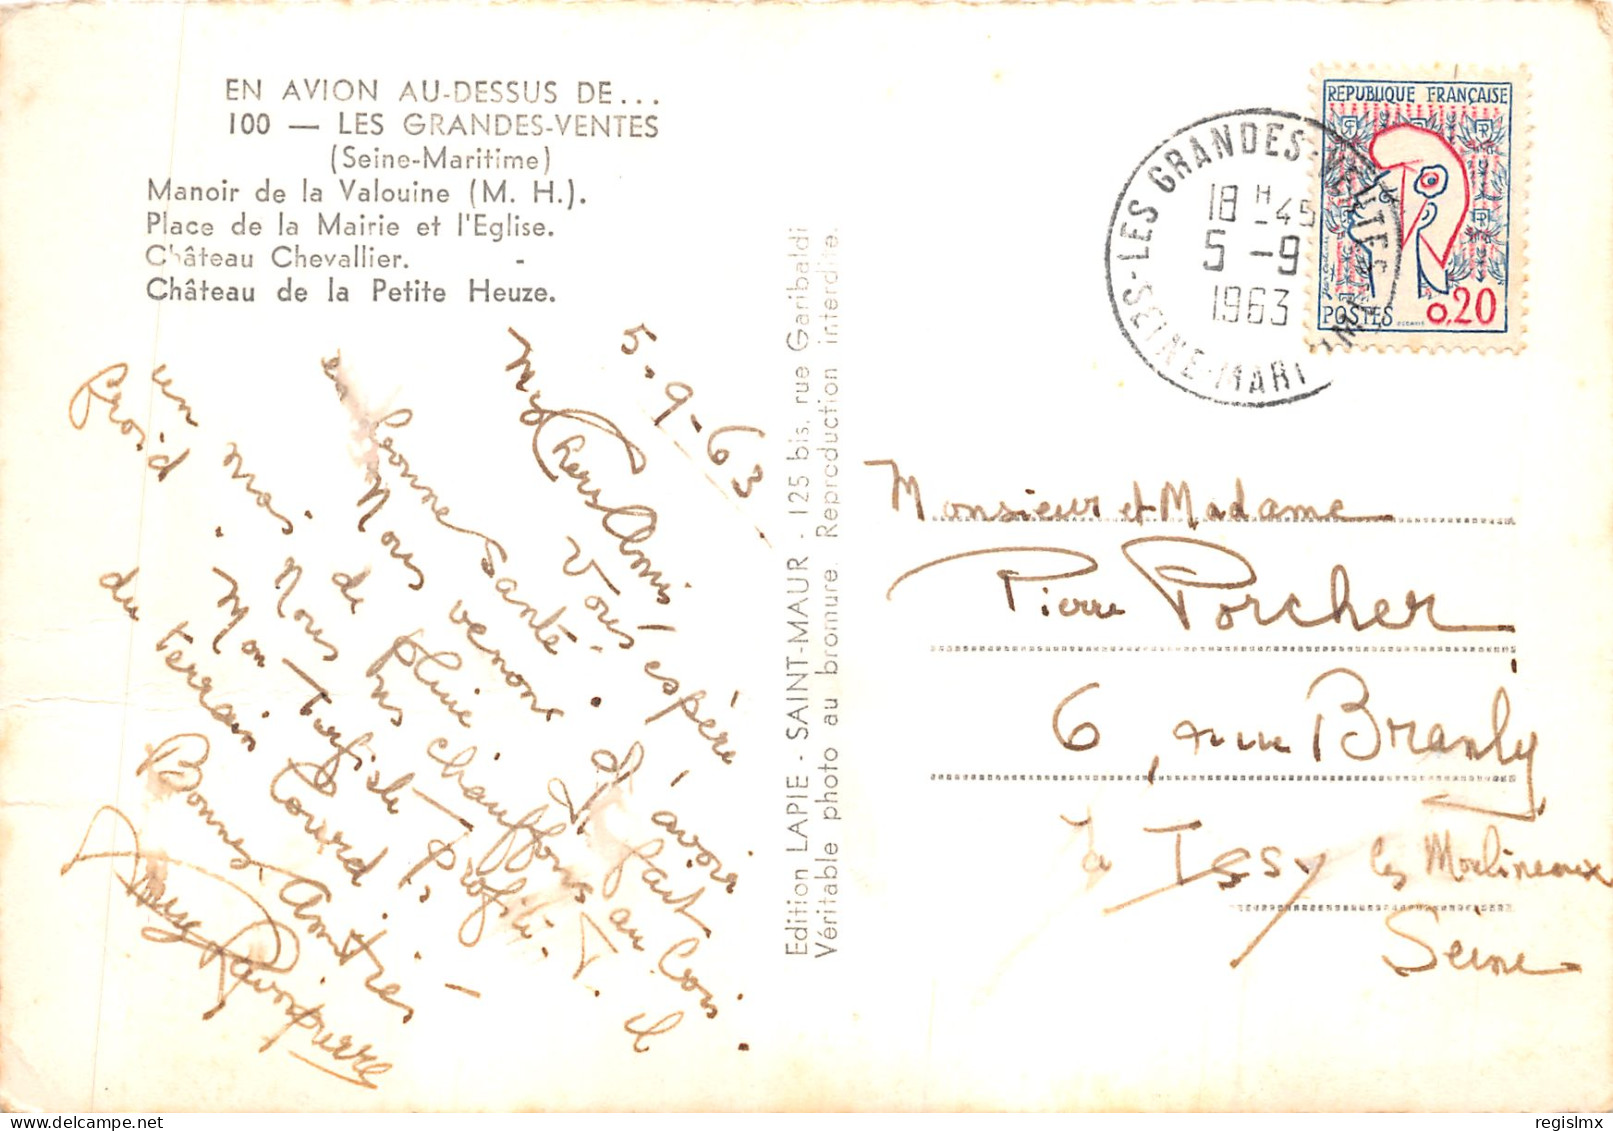 EN AVION AU-DESSUS DE...
100 — LES GRANDES-VENTES
(Seine-Maritime)
Manoir de la Valouine (M. H.).
Place de la Mairie et l'Eglise.
Château Chevallier. -
Château de la Petite Heuze.
5-9-63
My Chers Amis
Vous espère
en bonne santé.
Nous venons d'avoir
un mois de pluie et
froid. Nous ns chauffons au
Mon Turfiste profite
du terrain lourd
Bonnes Amitiés
Edition LAPIE - SAINT-MAUR - 125 bis, rue Garibaldi
Véritable photo au bromure. Reproduction interdite.
LES GRANDES-VENTES
18 H 45
5 -9
1963
SEINE-MARITIME
REPUBLIQUE FRANÇAISE
POSTES 0,20
Monsieur et Madame
Pierre Porcher
6, rue Branly
à Issy les Moulineaux
Seine
regislmx